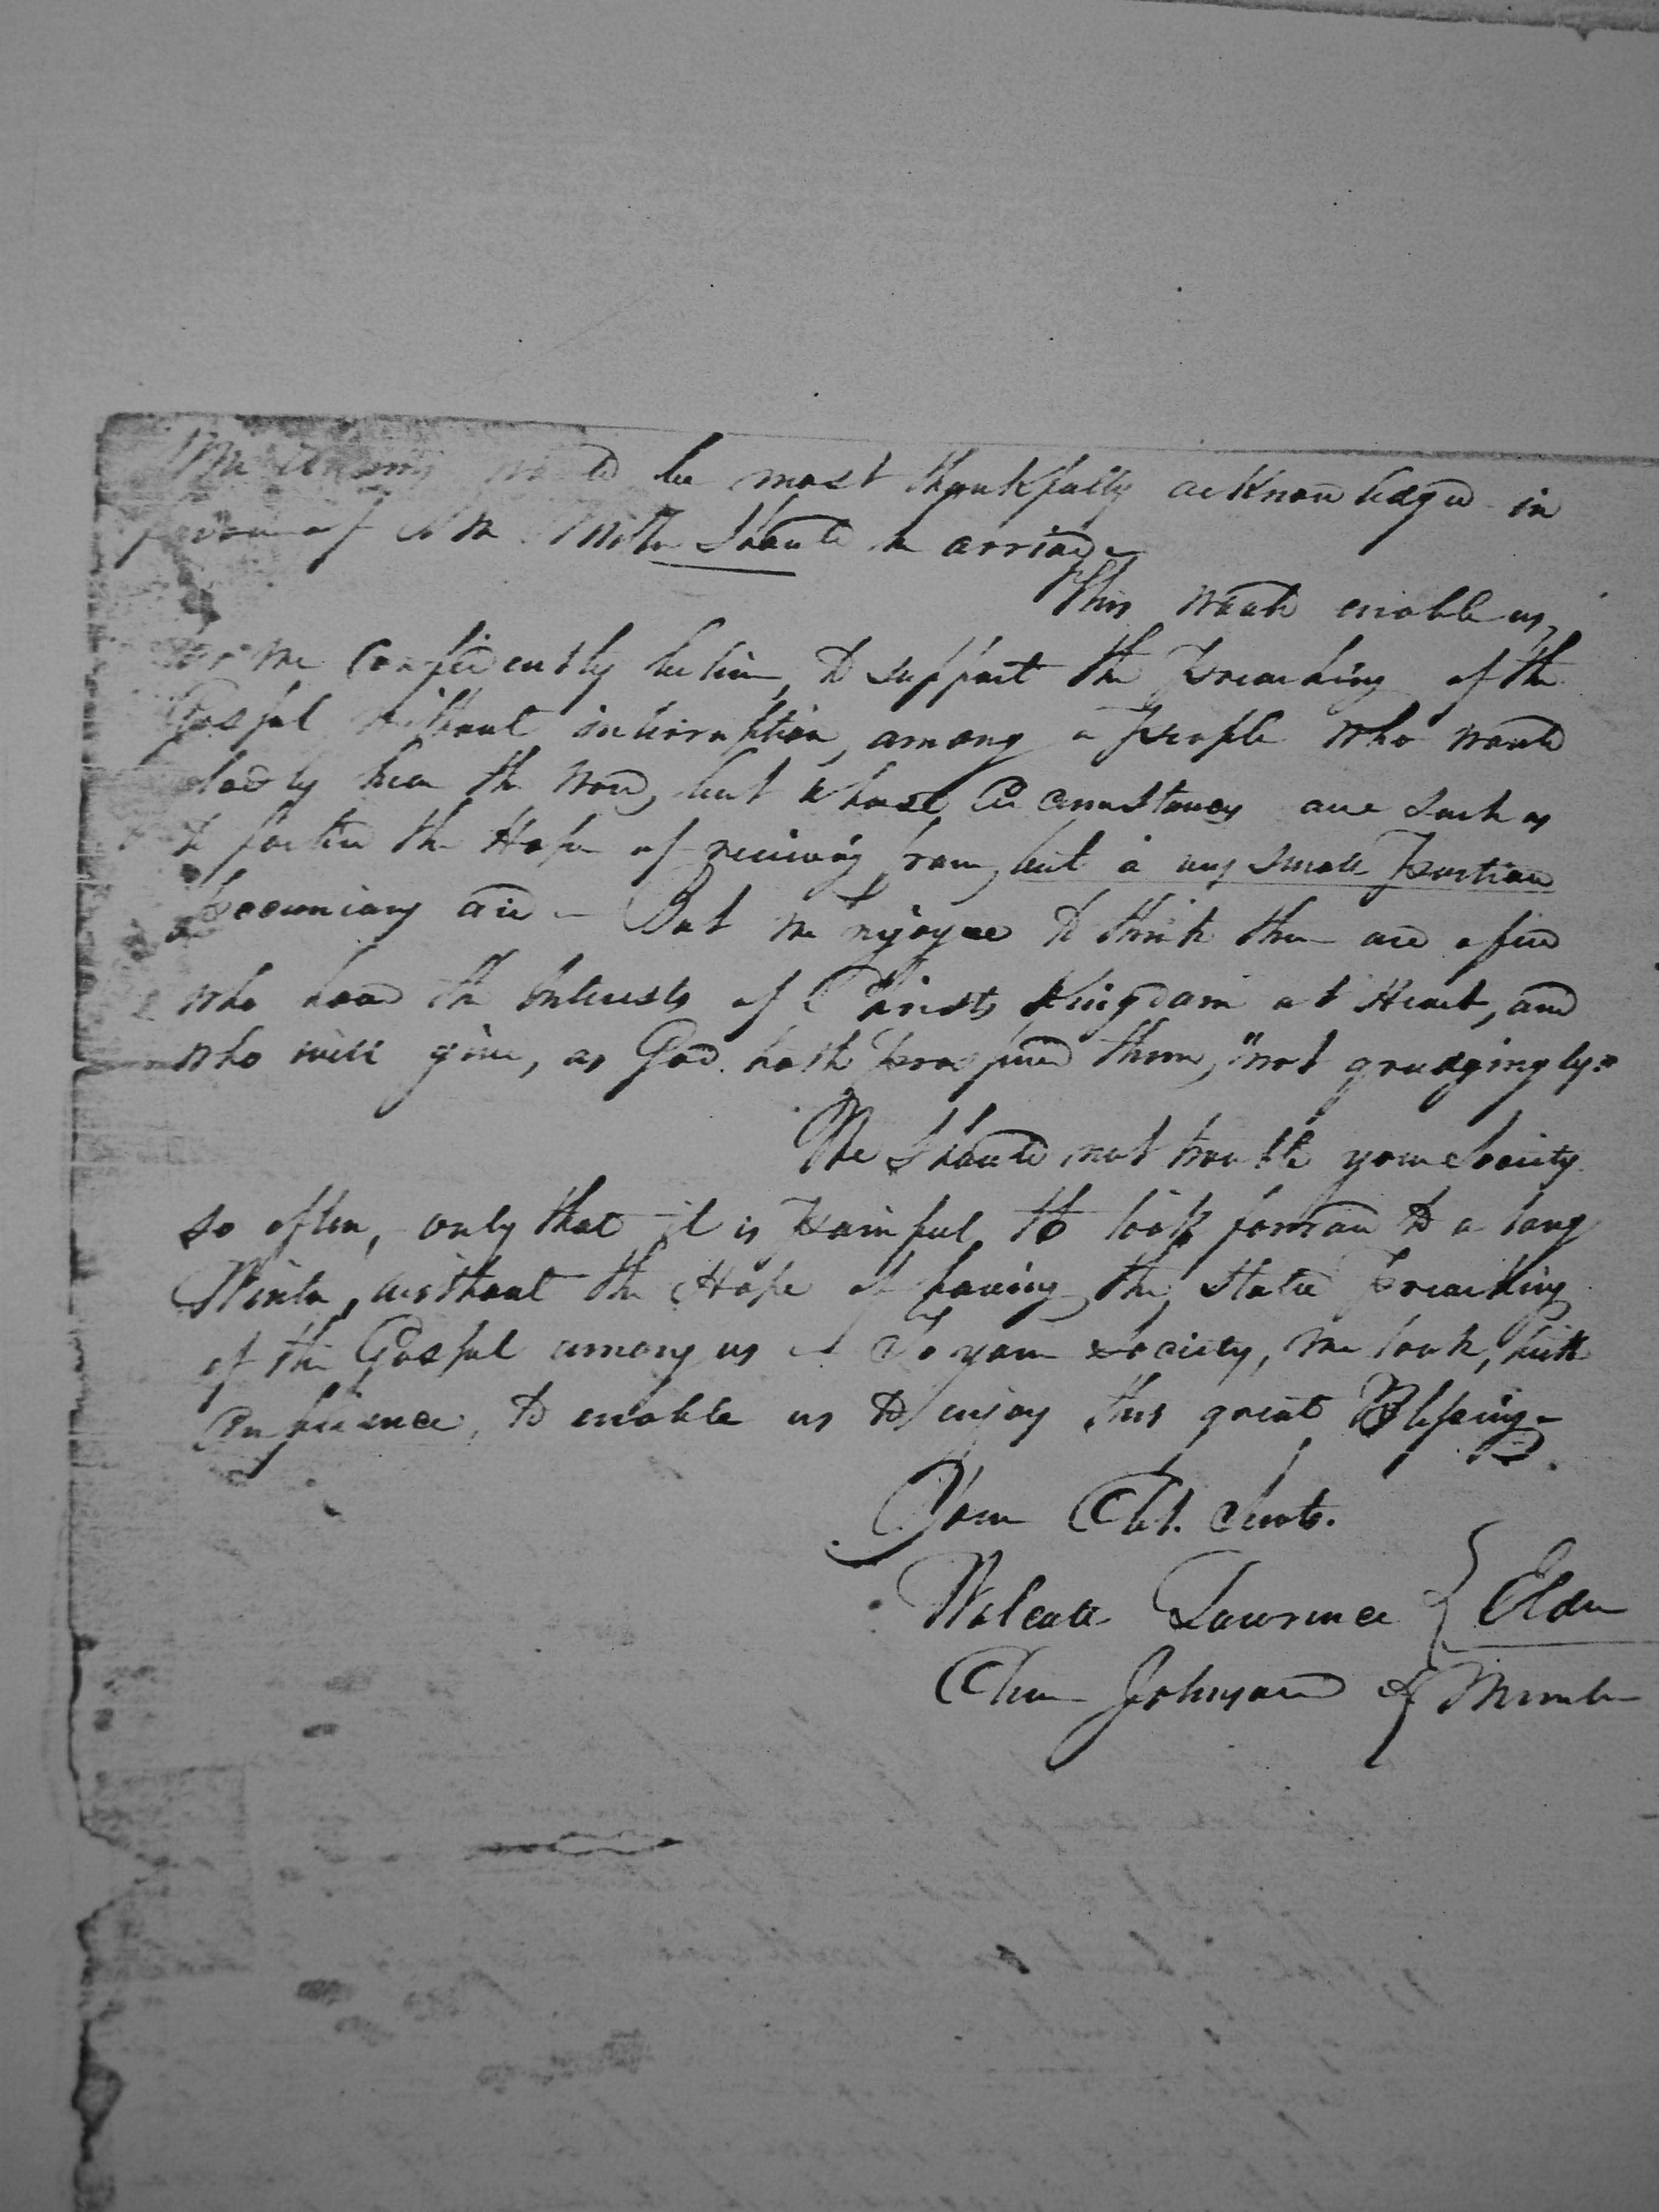 be most thankfully acknowledged in
favour of Mr Miller should he arrive
This would enable us,
we confidently believe, to support the Preaching of the
Gospel without interruption, among a People who would
gladly hear the Word, but whose Circumstances are such as
to forbid the Hope of receiving from, but a very small Portion
Pecuniary aid – But we rejoyce to think there are a few
who have the Interests of Christs Kingdom at Heart, and
who will give, as God hath prospered them, "not grudgingly"
We should not trouble your Society
so often, only that it is Painful, to look forward to a long
Winter, without the Hope of having the stated Preaching
of the Gospel among us – To your Society, we look, with
Confidence, to enable us to enjoy this great Blessing –
Your Obt. Servts.
Walcott Lawrence } Elder
Johnson } Member